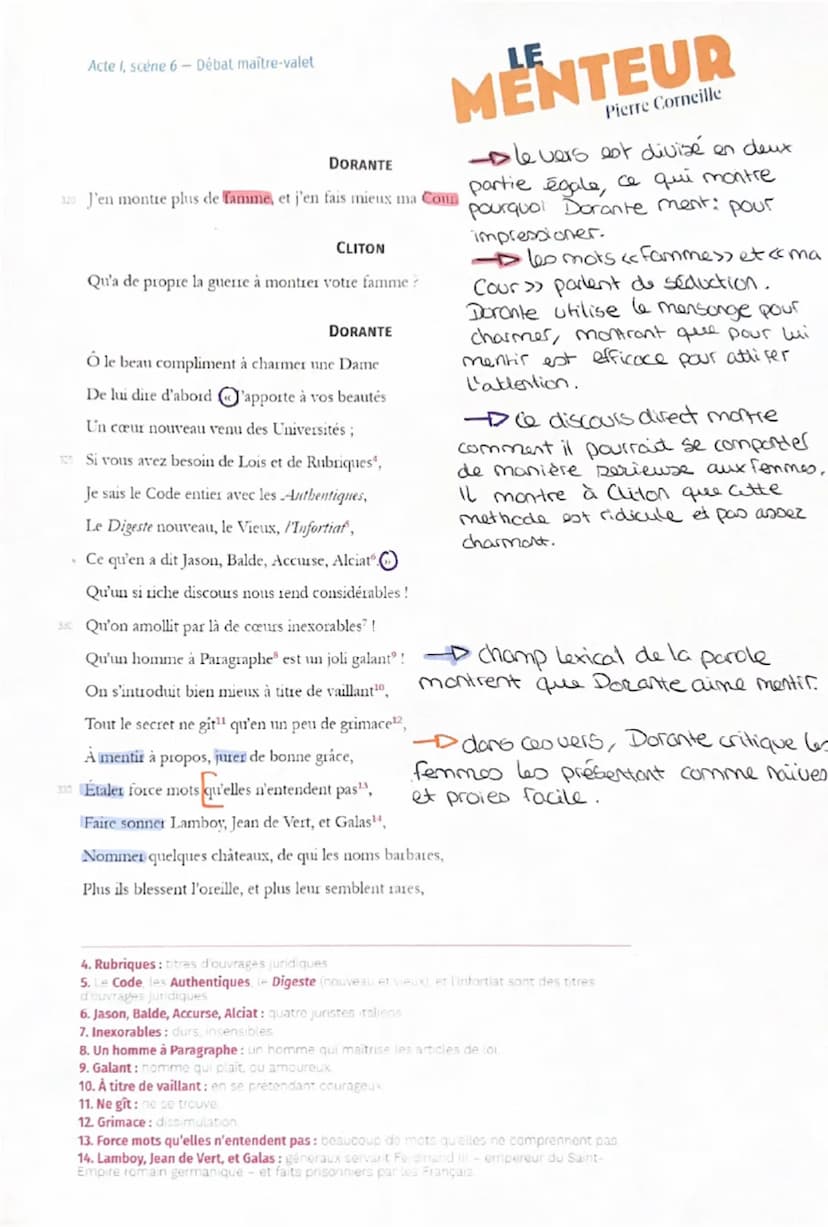 Acte I, scène 6 — Débat maître-valet
LE
MENTEUR
Pierre Corneille
DORANTE
320 J'en montre plus de famme, et j'en fais mieux ma Cour.
CLITON
Qu'a de propre la guerre à montrer votre famme ?
DORANTE
Ô le beau compliment à charmer une Dame
De lui dire d'abord « J'apporte à vos beautés
Un cœur nouveau venu des Universités ;
325 Si vous avez besoin de Lois et de Rubriques4,
Je sais le Code entier avec les Authentiques,
Le Digeste nouveau, le Vieux, l'Infortiat5,
Ce qu'en a dit Jason, Balde, Accurse, Alciat6. »
Qu'un si riche discours nous rend considérables !
330 Qu'on amollit par là de cœurs inexorables7 !
Qu'un homme à Paragraphe8 est un joli galant9 !
On s'introduit bien mieux à titre de vaillant10,
Tout le secret ne gît11 qu'en un peu de grimace12,
À mentir à propos, jurer de bonne grâce,
335 Étaler force mots qu'elles n'entendent pas13,
Faire sonner Lamboy, Jean de Vert, et Galas14,
Nommer quelques châteaux, de qui les noms barbares,
Plus ils blessent l'oreille, et plus leur semblent rares,
le vers est divisé en deux
partie égale, ce qui montre
pourquoi Dorante ment : pour
impressioner.
les mots «famme» et «ma
Cour» parlent de séduction.
Dorante utilise le mensonge pour
charmer, montrant que pour lui
mentir est efficace pour attirer
l'attention.
Ce discours direct montre
comment il pourrait se comporter
de manière serieuse aux femmes,
Il montre à Cliton que cette
methode est ridicule et pas assez
charmant.
champ lexical de la parole
montrent que Dorante aime mentir.
dans ces vers, Dorante critique les
femmes les présentant comme naïves
et proies facile.
4. Rubriques : titres d'ouvrages juridiques
5. Le Code, les Authentiques, le Digeste (nouveau et vieux), et l'Infortiat sont des titres
d'ouvrages juridiques
6. Jason, Balde, Accurse, Alciat : quatre juristes italiens
7. Inexorables : durs, insensibles
8. Un homme à Paragraphe : un homme qui maîtrise les articles de loi
9. Galant : homme qui plaît, ou amoureux
10. À titre de vaillant : en se prétendant courageux
11. Ne gît : ne se trouve
12. Grimace : dissimulation
13. Force mots qu'elles n'entendent pas : beaucoup de mots qu'elles ne comprennent pas
14. Lamboy, Jean de Vert, et Galas : généraux servant Ferdinand III – empereur du Saint-
Empire romain germanique – et faits prisonniers par les Français.